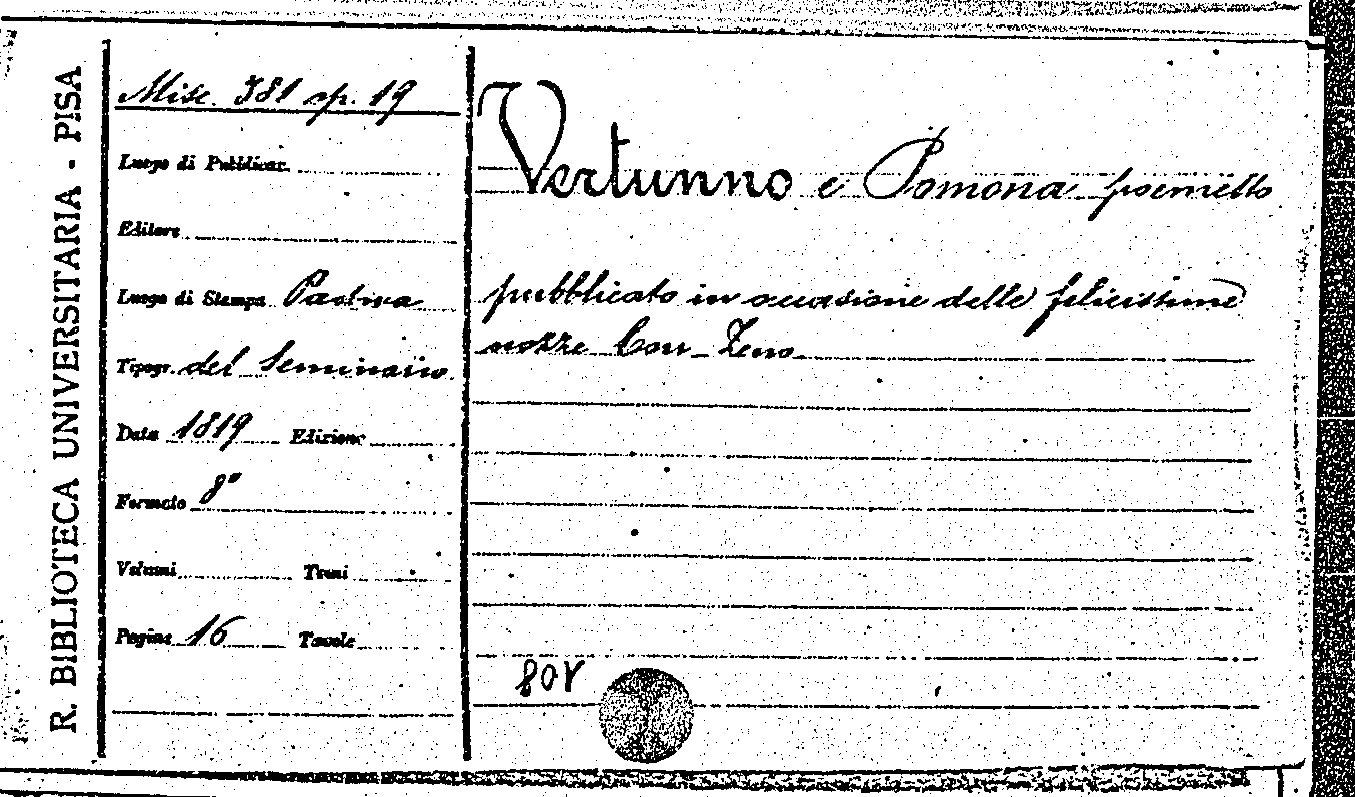 R. BIBLIOTECA UNIVERSITARIA - PISA
Misc. 381 op. 19
Luogo di Pubblicaz.
Editore
Luogo di Stampa Padova
Tipogr. del Seminario
Data 1819 Edizione
Formato 8°
Volumi Tomi
Pagine 16 Tavole
Vertunno e Pomona poemetto
pubblicato in occasione delle felicissime
nozze Corr Zeno